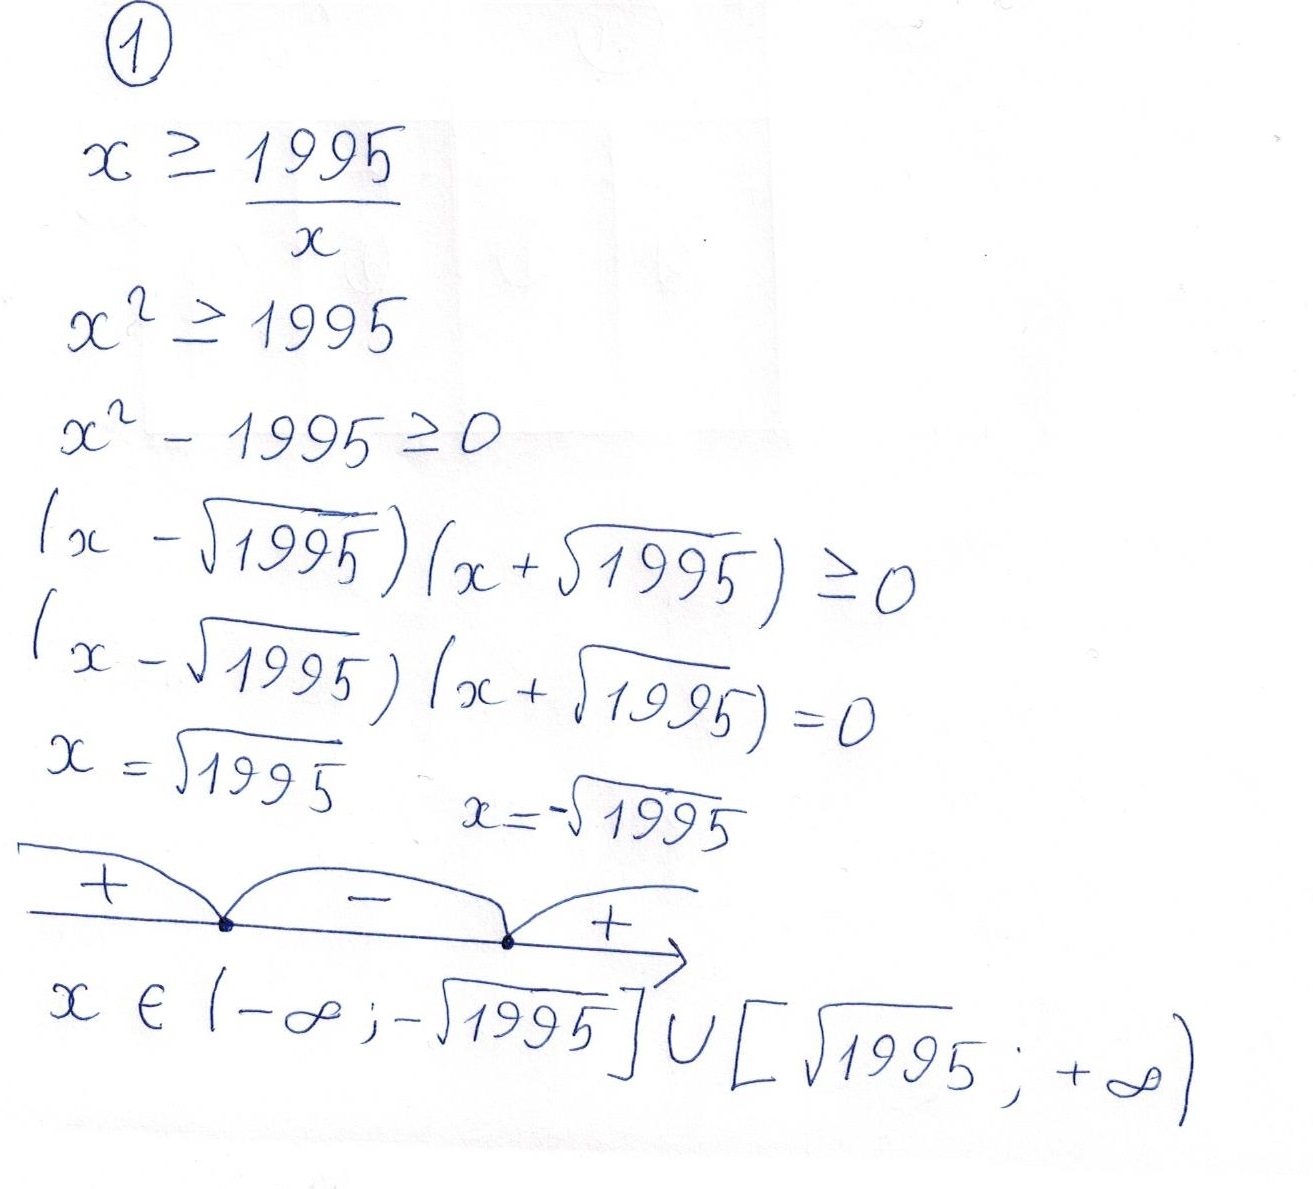 ①
x ≥ 1995/x
x² ≥ 1995
x² - 1995 ≥ 0
(x - √1995)(x + √1995) ≥ 0
(x - √1995)(x + √1995) = 0
x = √1995 x = -√1995
+ - +
x ∈ (-∞; -√1995] ∪ [√1995; +∞)